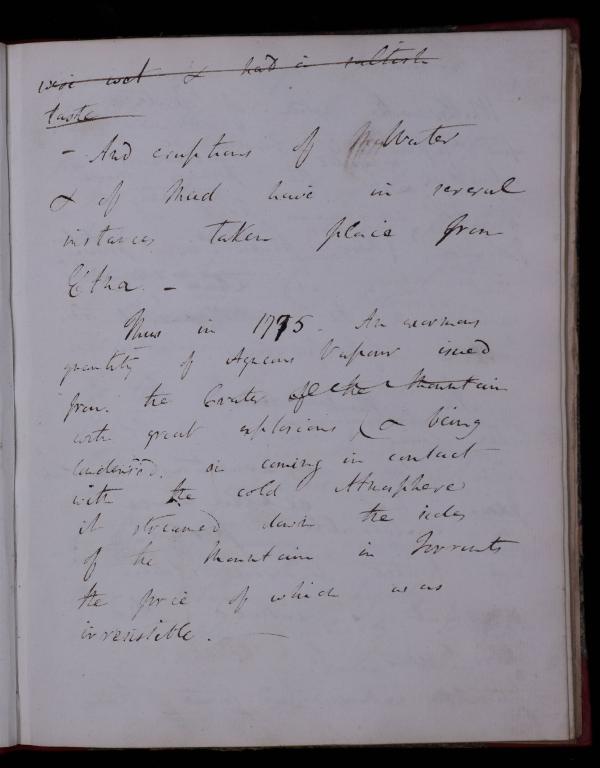 were wet & had a saltish
taste
- And eruptions of Water
& of Mud have in several
instances taken place from
Etna. -
Thus in 1775. An enormous
quantity of Aqueous Vapour issued
from the Crater of the Mountain
with great explosions & being
condensed. on coming in contact
with the cold Atmosphere
it streamed down the sides
of the Mountain in Torrents
the force of which was
irresistible. -